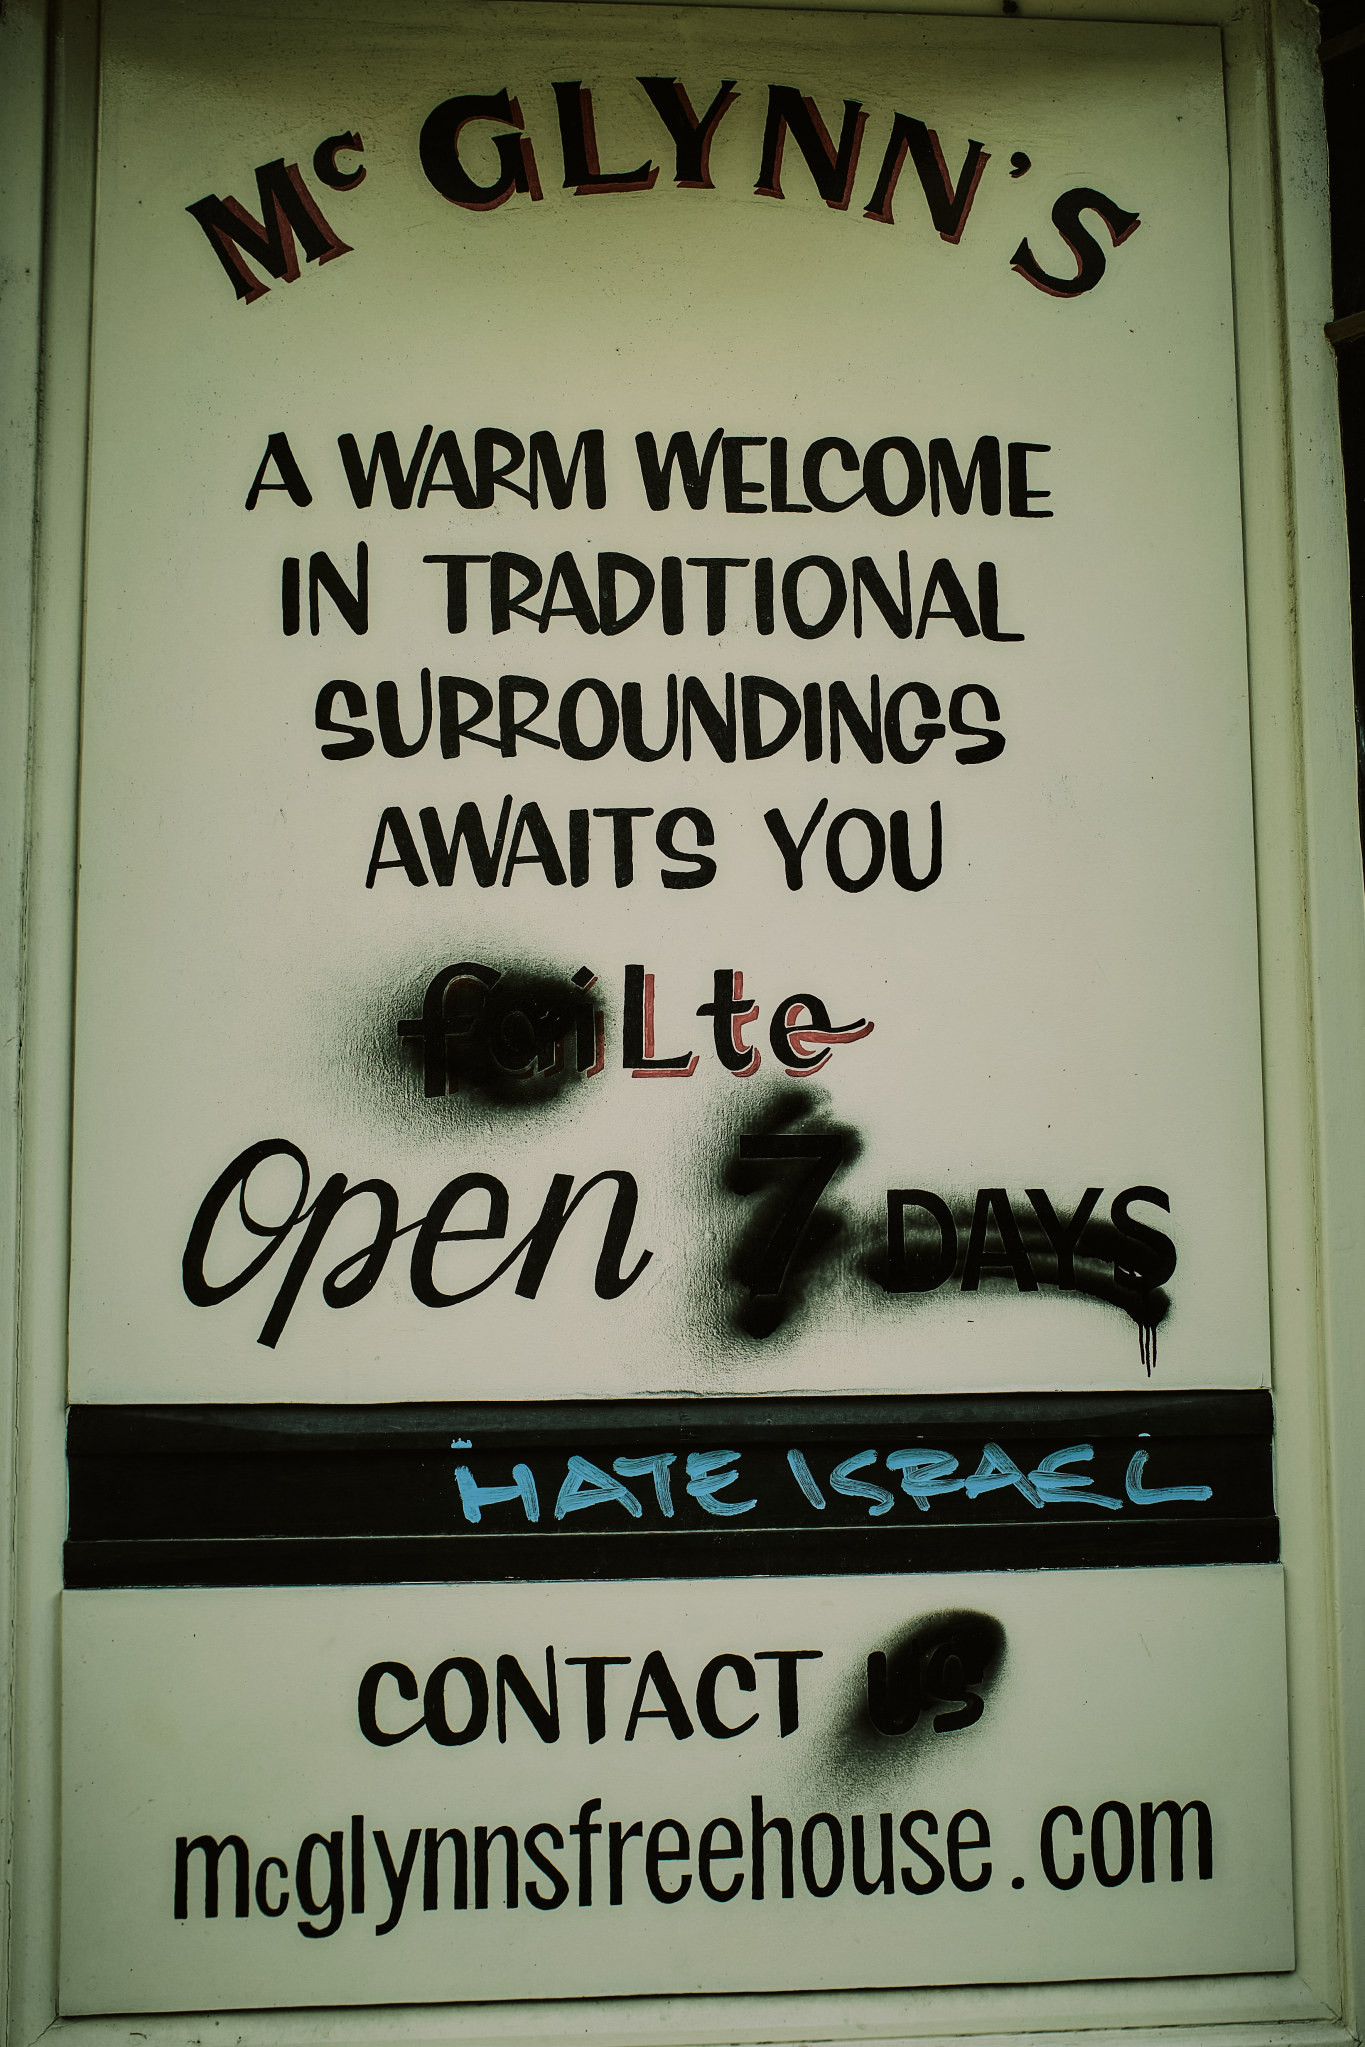 McGLYNN'S
A WARM WELCOME
IN TRADITIONAL
SURROUNDINGS
AWAITS YOU
faiLte
Open 7 DAYS
HATE ISRAEL
CONTACT US
mcglynnsfreehouse.com